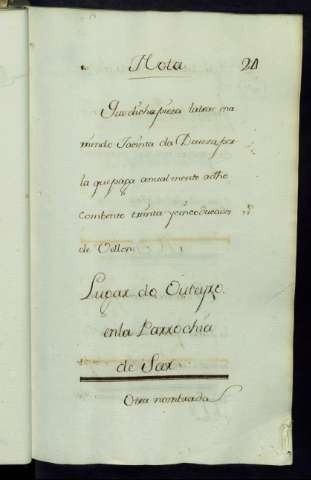 Nota 20
Que dicha pieza labra, ma
rando Jacinta da Devesa por
la que paga anualmente adho
Combento treinta ycinco Ducados
de Vellon
Lugar do Outeyro
enla Parrochia
de Sar
Otra nombrada